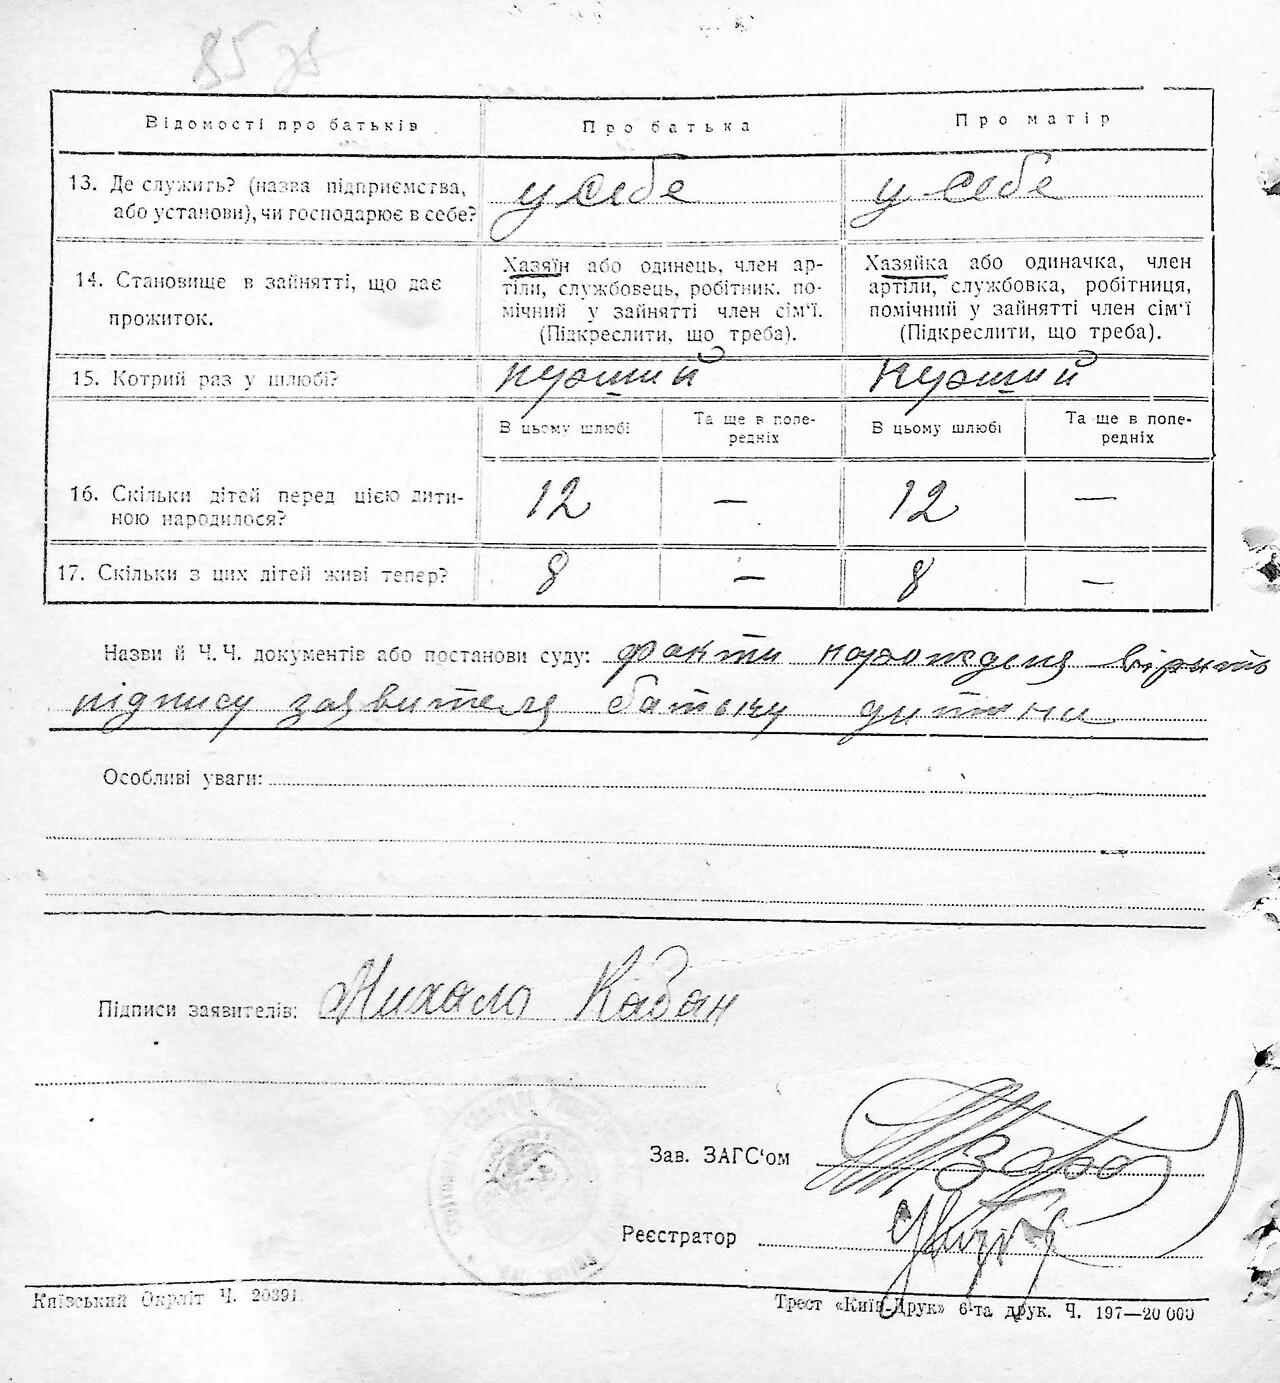 85 зв
Відомості про батьків
Про батька
Про матір
13. Де служить? (назва підприємства,
або установи), чи господарює в себе?
у себе
у себе
14. Становище в зайнятті, що дає
прожиток.
Хазяїн або одинець, член ар-
тіли, службовець, робітник. по-
мічний у зайнятті член сім'ї.
(Підкреслити, що треба).
Хазяйка або одиначка, член
артіли, службовка, робітниця,
помічний у зайнятті член сім'ї
(Підкреслити, що треба).
15. Котрий раз у шлюбі?
перший
перший
В цьому шлюбі
Та ще в попе-
редніх
В цьому шлюбі
Та ще в попе-
редніх
16. Скільки дітей перед цією дити-
ною народилося?
12
—
12
—
17. Скільки з цих дітей живі тепер?
8
—
8
—
Назви й Ч. Ч. документів або постанови суду: факти
підпису заявителя батьку дитини
Особливі уваги:
Підписи заявителів: Михало Кабан
Зав. ЗАГС'ом
Реєстратор
Київський Окрліт Ч. 20391.
Трест «Київ-Друк» 6-та друк. Ч. 197—20 000